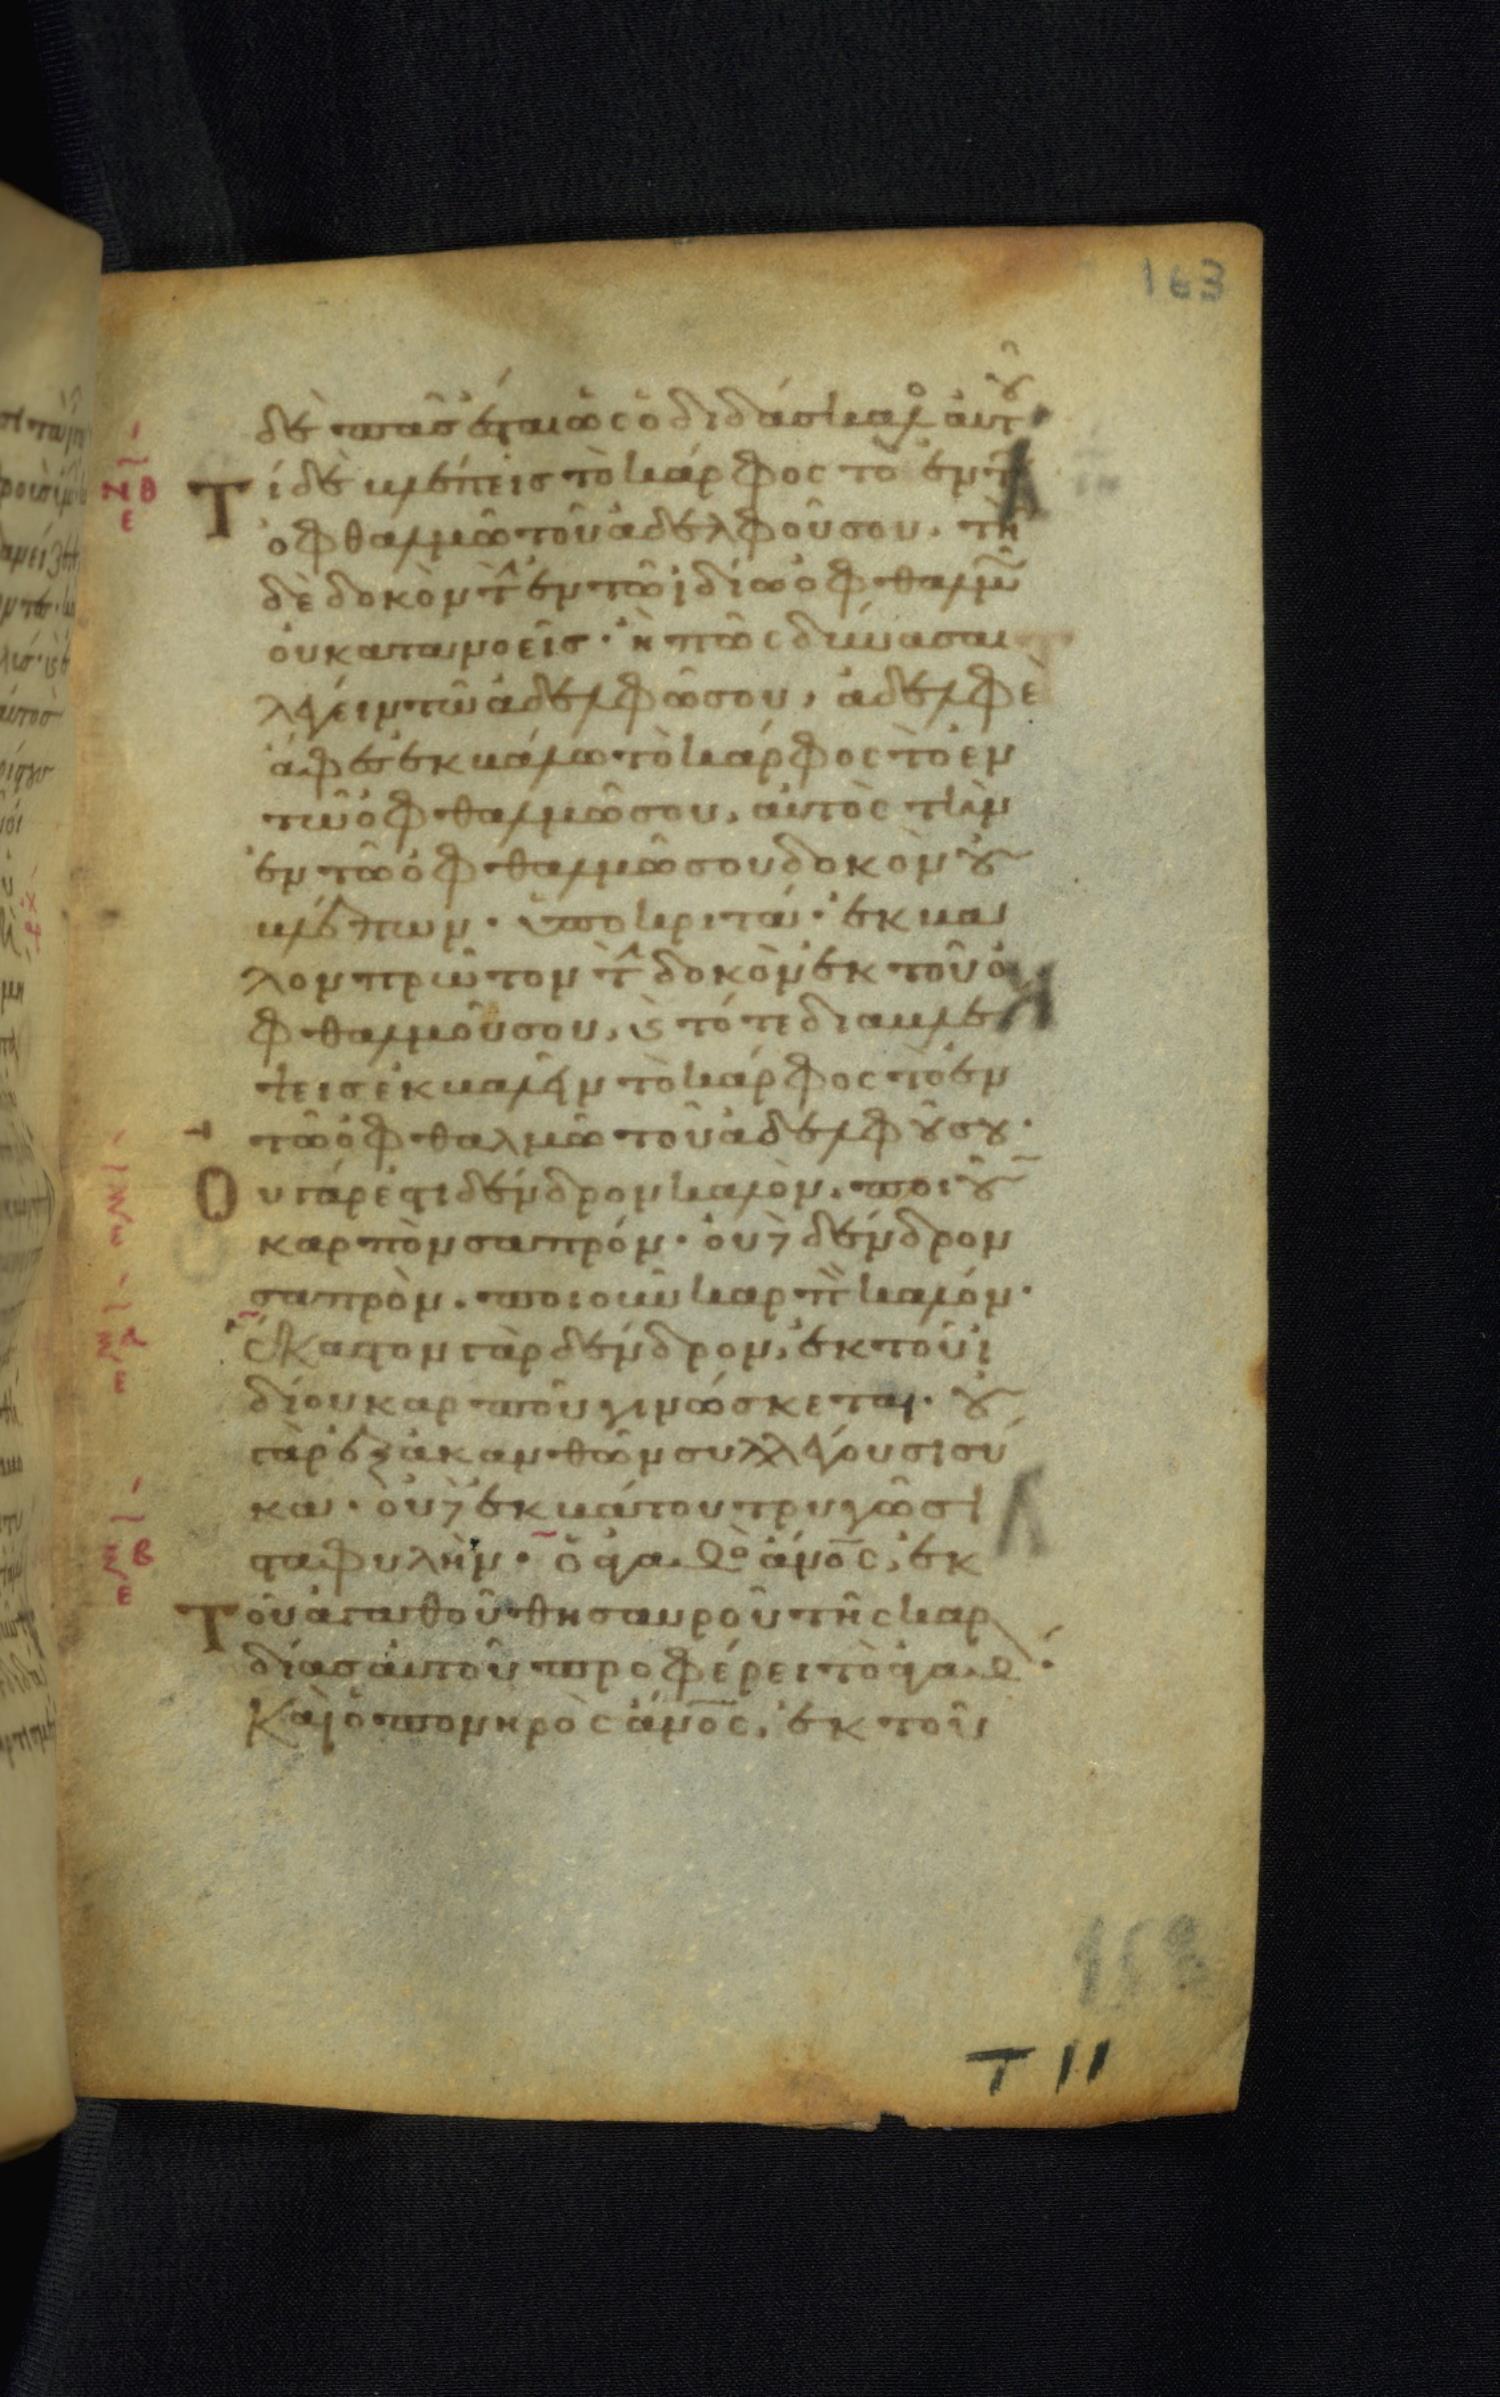 163
δὲ πᾶς ἔσται ὡς ὁ διδάσκαλο αὐτοῦ
Τί δὲ βλέπεις τὸ κάρφος τὸ ἐν τῷ
ὀφθαλμῶ τοῦ ἀδελφοῦ σου, τὴν
δὲ δοκὸν τὴν ἐν τῶ ἰδίω ὀφθαλμῶ
οὐ κατανοεῖς· ἢ πῶς δύνασαι
λέγειν τῶ ἀδελφῶ σου, ἀδελφὲ
ἄφες ἐκβάλω τὸ κάρφος τὸ ἐν
τῶ ὀφθαλμῶ σου, αὐτὸς τὴν
ἐν τῶ ὀφθαλμῶ σου δοκὸν οὐ
βλέπων· ὑποκριτά· ἔκβα
λον πρῶτον τὴν δοκὸν ἐκ τοῦ ὀ
φθαλμοῦ σου, ϗ τότε διαβλέ
ψεις ἐκβαλεῖν τὸ κάρφος τὸ ἐν
τῶ ὀφθαλμῶ τοῦ ἀδελφοῦ σου·
Οὐ γάρ ἐστι δένδρον καλὸν, ποιοῦν
καρπὸν σαπρόν· οὐδὲ δένδρον
σαπρὸν, ποιοῦν καρπὸν καλόν·
Ἕκαστον γὰρ δένδρον, ἐκ τοῦ ἰ
δίου καρποῦ γινώσκεται· οὐ
γὰρ ἐξ ἀκανθῶν συλλέγουσι σῦ
κα· οὐδὲ ἐκ βάτου τρυγῶσι
σταφυλὴν· ὁ ἀγαθὸ ἄνος, ἐκ
Τοῦ ἀγαθοῦ θησαυροῦ τῆς καρ
δίας αὐτοῦ προφέρει τὸ ἀγαθ·
Καὶ ὁ πονηρὸς ἄνος, ἐκ τοῦ
163
T 11